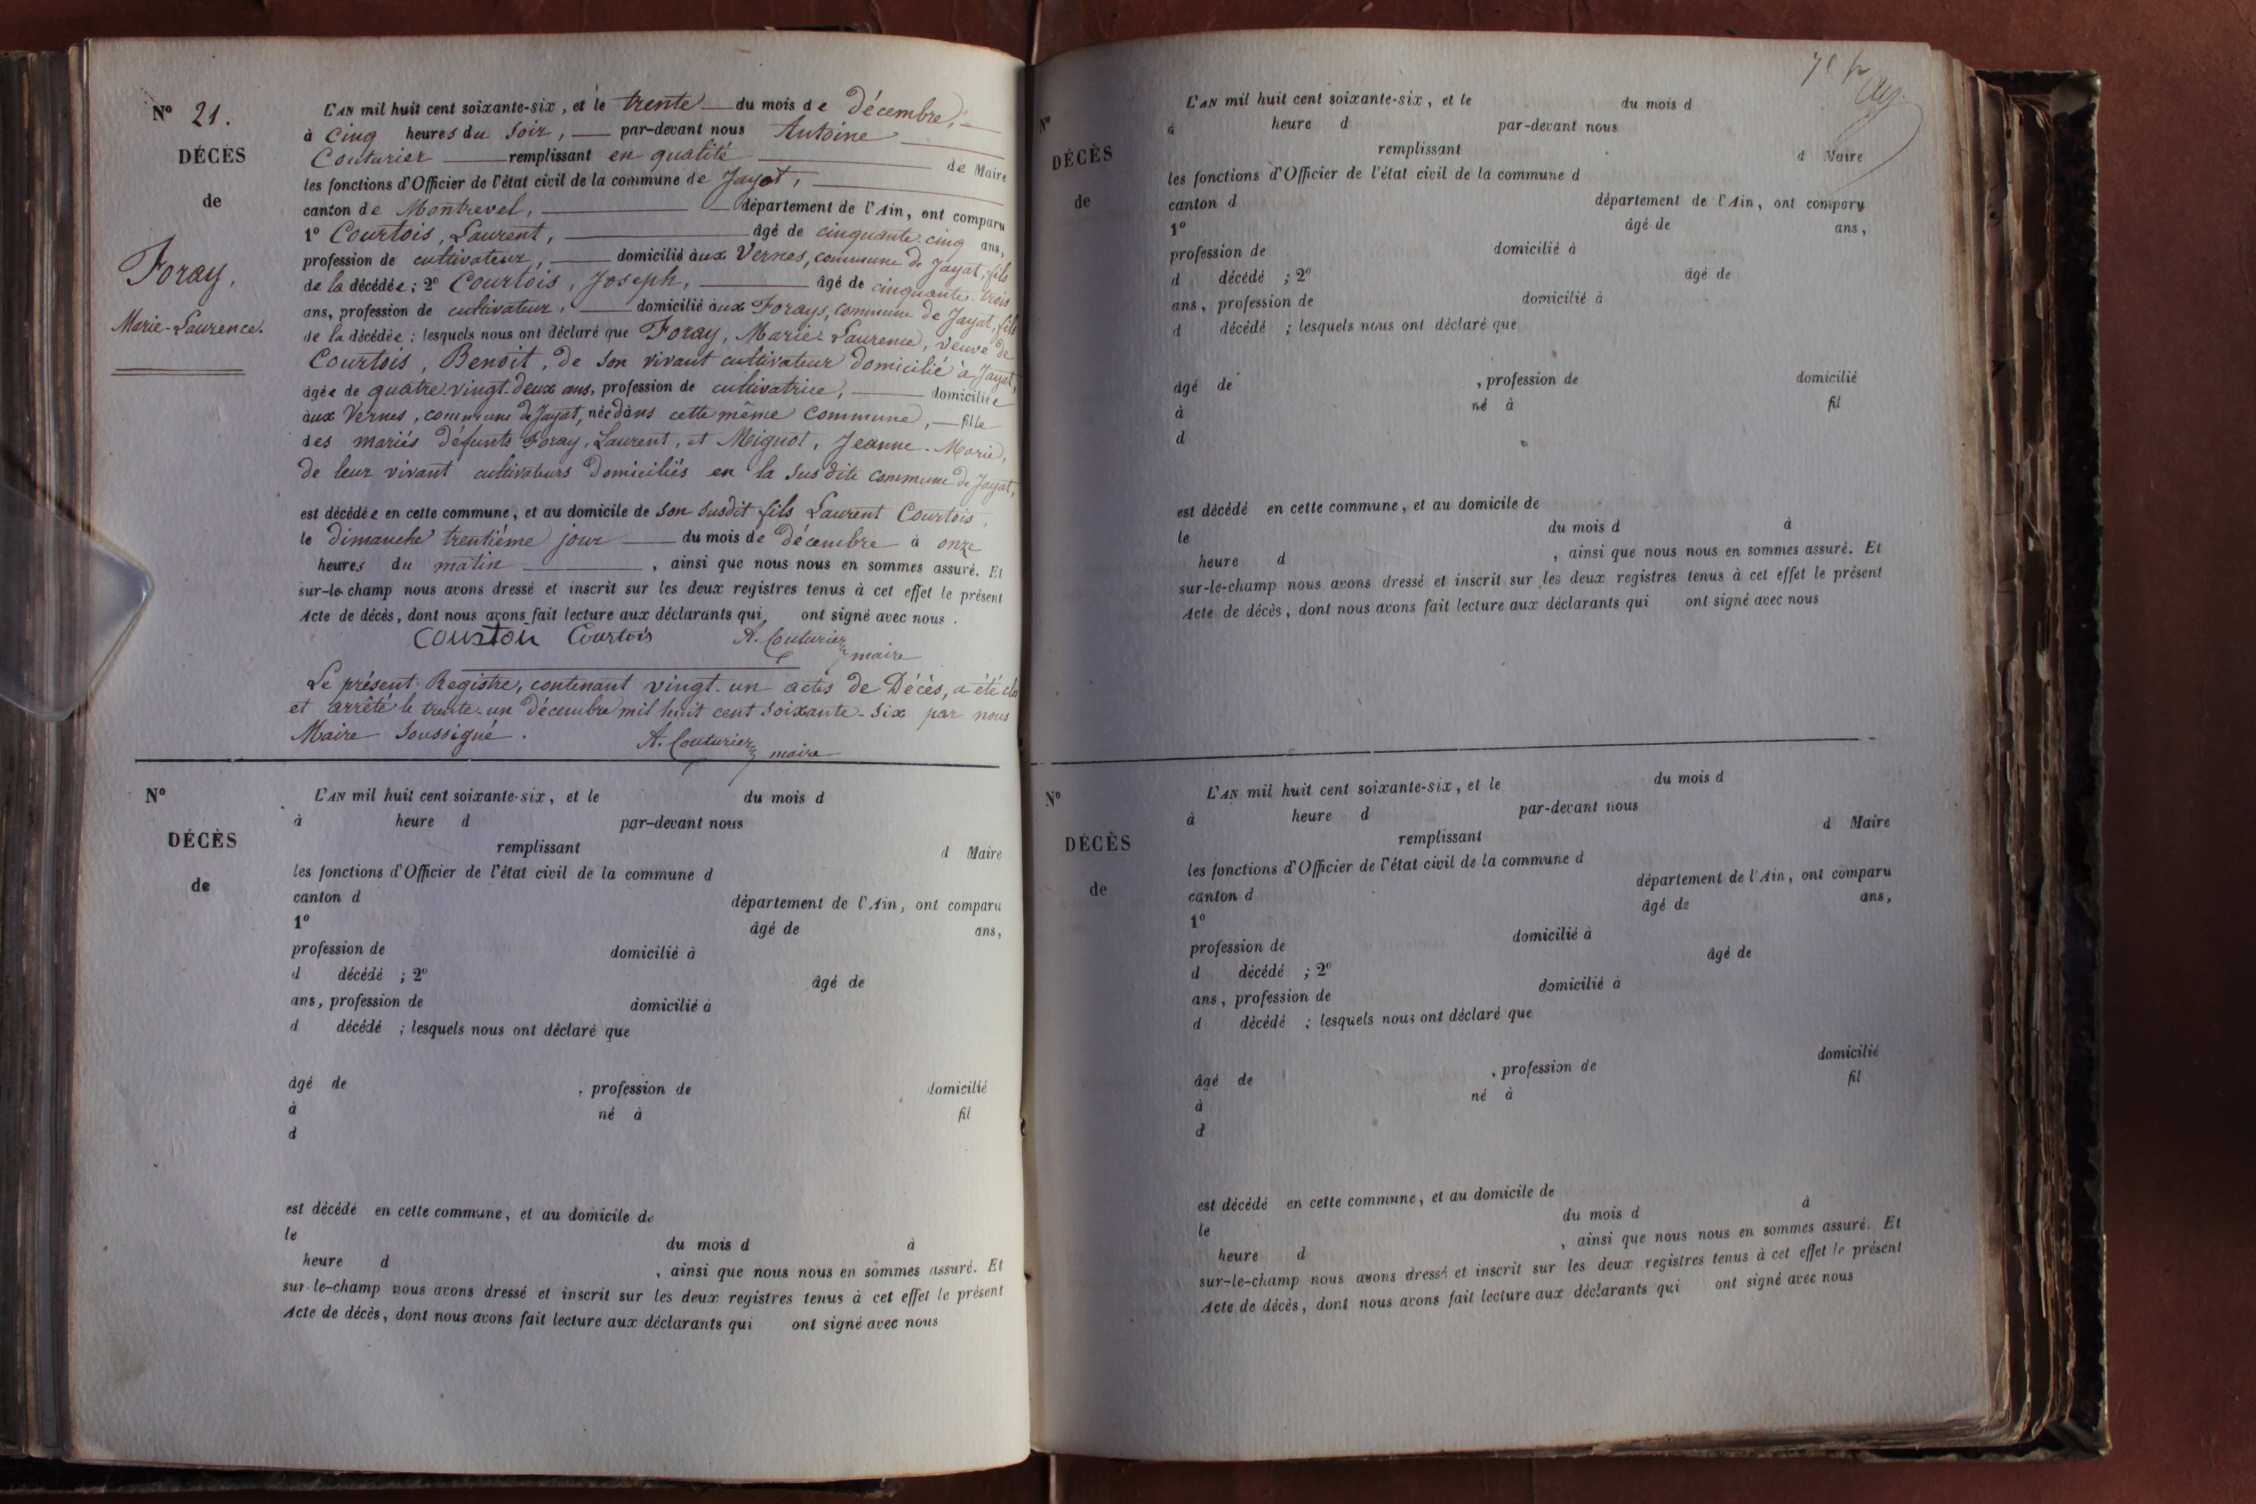 N° 21.
DÉCÈS
de
Foray,
Marie-Laurence.
L'AN mil huit cent soixante-six, et le trente du mois de décembre,
à cinq heures du soir, par-devant nous Antoine
Couturier remplissant en qualité de Maire
les fonctions d'Officier de l'état civil de la commune de Jayat,
canton de Montrevel, département de l'Ain, ont comparu
1° Courtois, Laurent, âgé de cinquante-cinq ans,
profession de cultivateur, domicilié aux Vernes, commune de Jayat, fils
de la décédée ; 2° Courtois, Joseph, âgé de cinquante-trois
ans, profession de cultivateur, domicilié aux Forays, commune de Jayat, fils
de la décédée ; lesquels nous ont déclaré que Foray, Marie-Laurence, veuve de
Courtois, Benoit, de son vivant cultivateur domicilié à Jayat,
âgée de quatre-vingt-deux ans, profession de cultivatrice, domiciliée
aux Vernes, commune de Jayat, née dans cette même commune, fille
des mariés défunts Foray, Laurent, et Meignot, Jeanne-Marie,
de leur vivant cultivateurs domiciliés en la susdite commune de Jayat,
est décédée en cette commune, et au domicile de son susdit fils Laurent Courtois,
le dimanche trentième jour du mois de décembre à onze
heures du matin, ainsi que nous nous en sommes assuré. Et
sur-le-champ nous avons dressé et inscrit sur les deux registres tenus à cet effet le présent
Acte de décès, dont nous avons fait lecture aux déclarants qui ont signé avec nous.
Courtois A. Couturier
maire
Le présent Registre, contenant vingt-un actes de Décès, a été clos
et arrêté le trente-un décembre mil huit cent soixante-six par nous
Maire soussigné.
A. Couturier maire
N°
DÉCÈS
de
L'AN mil huit cent soixante-six, et le du mois d
à heure d par-devant nous
remplissant d Maire
les fonctions d'Officier de l'état civil de la commune d
canton d département de l'Ain, ont comparu
1° âgé de ans,
profession de domicilié à
d décédé ; 2° âgé de
ans, profession de domicilié à
d décédé ; lesquels nous ont déclaré que
âgé de , profession de domicilié
à né à fil
d
est décédé en cette commune, et au domicile de
le du mois d à
heure d , ainsi que nous nous en sommes assuré. Et
sur-le-champ nous avons dressé et inscrit sur les deux registres tenus à cet effet le présent
Acte de décès, dont nous avons fait lecture aux déclarants qui ont signé avec nous
N°
DÉCÈS
de
L'AN mil huit cent soixante-six, et le du mois d
à heure d par-devant nous
remplissant d Maire
les fonctions d'Officier de l'état civil de la commune d
canton d département de l'Ain, ont comparu
1° âgé de ans,
profession de domicilié à
d décédé ; 2° âgé de
ans, profession de domicilié à
d décédé ; lesquels nous ont déclaré que
âgé de , profession de domicilié
à né à fil
d
est décédé en cette commune, et au domicile de
le du mois d à
heure d , ainsi que nous nous en sommes assuré. Et
sur-le-champ nous avons dressé et inscrit sur les deux registres tenus à cet effet le présent
Acte de décès, dont nous avons fait lecture aux déclarants qui ont signé avec nous
N°
DÉCÈS
de
L'AN mil huit cent soixante-six, et le du mois d
à heure d par-devant nous
remplissant d Maire
les fonctions d'Officier de l'état civil de la commune d
canton d département de l'Ain, ont comparu
1° âgé de ans,
profession de domicilié à
d décédé ; 2° âgé de
ans, profession de domicilié à
d décédé ; lesquels nous ont déclaré que
âgé de , profession de domicilié
à né à fil
d
est décédé en cette commune, et au domicile de
le du mois d à
heure d , ainsi que nous nous en sommes assuré. Et
sur-le-champ nous avons dressé et inscrit sur les deux registres tenus à cet effet le présent
Acte de décès, dont nous avons fait lecture aux déclarants qui ont signé avec nous